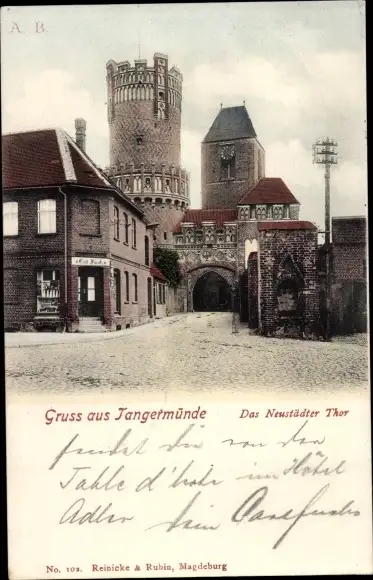 A. B.
Gruss aus Tangermünde Das Neustädter Thor
sendet Dir von der
Table d'hote im Hôtel
Adler dein
No. 102. Reinicke & Rubin, Magdeburg